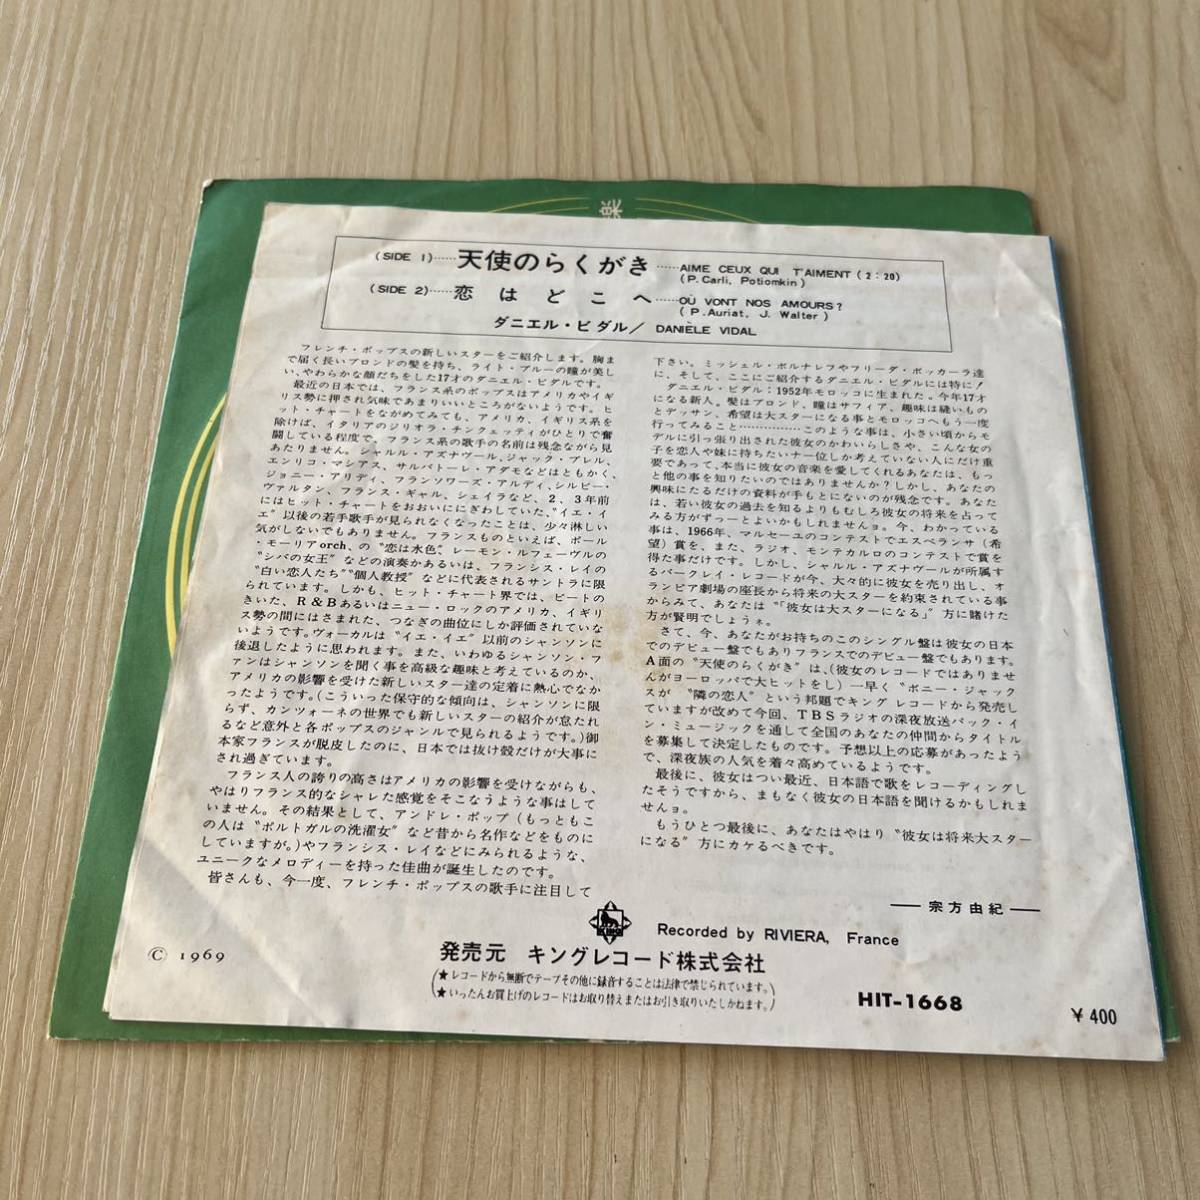 (SIDE 1)……天使のらくがき……AIME CEUX QUI T'AIMENT (2:20)
(P. Carli, Potiomkin)
(SIDE 2)……恋はどこへ……OÙ VONT NOS AMOURS?
(P. Auriat, J. Walter)
ダニエル・ビダル／ DANIÈLE VIDAL
フレンチ・ポップスの新しいスターをご紹介します。胸ま
で届く長いブロンドの髪を持ち、ライト・ブルーの瞳が美し
い、やわらかな顔だちをした17才のダニエル・ビダルです。
最近の日本では、フランス系のポップスはアメリカやイギ
リス勢に押され気味であまりいいところがないようです。ヒ
ット・チャートをながめてみても、アメリカ、イギリス系を
除けば、イタリアのジリオラ・チンクェッティがひとりで奮
闘している程度で、フランス系の歌手の名前は残念ながら見
あたりません。シャルル・アズナヴール、ジャック・ブレル、
エンリコ・マシアス、サルバトーレ・アダモなどはともかく、
ジョニー・アリディ、フランソワーズ・アルディ、シルビー・
ヴァルタン、フランス・ギャル、シェイラなど、2、3年前
にはヒット・チャートをおおいににぎわしていた、“イエ・イ
エ”以後の若手歌手が見られなくなったことは、少々淋しい
気がしないでもありません。フランスものといえば、ポール
・モーリアorch、の“恋は水色”レーモン・ルフェーヴルの
“シバの女王”などの演奏かあるいは、フランシス・レイの
“白い恋人たち”“個人教授”などに代表されるサントラに限
られています。しかも、ヒット・チャート界では、ビートの
きいた、R＆Bあるいはニュー・ロックのアメリカ、イギリ
ス勢の間にはさまれた、つなぎの曲位にしか評価されていな
いようです。ヴォーカルは“イエ・イエ”以前のシャンソンに
後退したように思われます。また、いわゆるシャンソン・フ
ァンはシャンソンを聞く事を高級な趣味と考えているのか、
アメリカの影響を受けた新しいスター達の定着に熱心でなか
ったようです。(こういった保守的な傾向は、シャンソンに限
らず、カンツォーネの世界でも新しいスターの紹介が怠たれ
るなど意外と各ポップスのジャンルで見られるようです。)御
本家フランスが脱皮したのに、日本では抜け殻だけが大事に
され過ぎています。
フランス人の誇りの高さはアメリカの影響を受けながらも、
やはりフランス的なシャレた感覚をそこなうような事はして
いません。その結果として、アンドレ・ポップ(もっともこ
の人は“ポルトガルの洗濯女”など昔から名作などをものに
していますが。)やフランシス・レイなどにみられるような、
ユニークなメロディーを持った佳曲が誕生したのです。
皆さんも、今一度、フレンチ・ポップスの歌手に注目して
下さい。ミッシェル・ポルナレフやフリーダ・ボッカーラ達
に、そして、ここにご紹介するダニエル・ビダルには特に！
ダニエル・ビダル：1952年モロッコに生まれた。今年17才
になる新人。髪はブロンド、瞳はサフィア、趣味は縫いもの
とデッサン、希望は大スターになる事とモロッコへもう一度
行ってみること……………このような事は、小さい頃からモ
デルに引っ張り出された彼女のかわいらしさや、こんな女の
子を恋人や妹に持ちたいナー位しか考えていない人にだけ重
要であって、本当に彼女の音楽を愛してくれるあなたは、もっ
と他の事を知りたいのではありませんか？しかし、あなたの
興味にたるだけの資料が手もとにないのが残念です。あなた
は、若い彼女の過去を知るよりもむしろ彼女の将来を占って
みる方がずっーとよいかもしれませんョ。今、わかっている
事は、1966年、マルセーユのコンテストでエスペランサ(希
望)賞を、また、ラジオ、モンテカルロのコンテストで賞を
得た事だけです。しかし、シャルル・アズナヴールが所属す
るバークレイ・レコードが今、大々的に彼女を売り出し、オ
ランピア劇場の座長から将来の大スターを約束されている事
からみて、あなたは“「彼女は大スターになる」”方に賭けた
方が賢明でしょうネ。
さて、今、あなたがお持ちのこのシングル盤は彼女の日本
でのデビュー盤でもありフランスでのデビュー盤でもあります。
A面の“天使のらくがき”は、(彼女のレコードではありませ
んがヨーロッパで大ヒットをし)一早く“ボニー・ジャック
スが“隣の恋人”という邦題でキングレコードから発売し
ていますが改めて今回、TBSラジオの深夜放送パック・イ
ン・ミュージックを通して全国のあなたの仲間からタイトル
を募集して決定したものです。予想以上の応募があったよう
で、深夜族の人気を着々高めているようです。
最後に、彼女はつい最近、日本語で歌をレコーディングし
たそうですから、まもなく彼女の日本語を聞けるかもしれま
せんョ。
もうひとつ最後に、あなたはやはり“彼女は将来大スター
になる”方にカケるべきです。
── 宗方由紀 ──
KING
Recorded by RIVIERA, France
© 1969
発売元 キングレコード株式会社
(★レコードから無断でテープその他に録音することは法律で禁じられています。
★いったんお買上げのレコードはお取り替えまたはお引き取りいたしかねます。)
HIT-1668
￥400